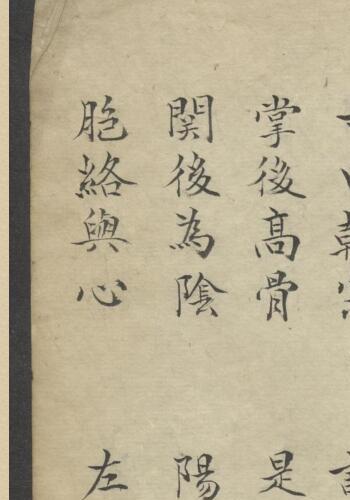 掌後高骨 是
関後為陰 陽
胞絡與心 左